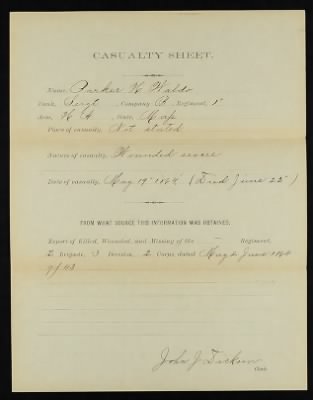 CASUALTY SHEET.
Name, Parker H Waldo
Rank, Sergt, Company B, Regiment, 1st
Arm, H A, State, Mass
Place of casualty, Not stated
Nature of casualty, Wounded severe
Date of casualty, May 19" 1864 (Died June 22")
FROM WHAT SOURCE THIS INFORMATION WAS OBTAINED.
Report of Killed, Wounded, and Missing of the — Regiment,
2 Brigade, 3 Division, 2 Corps, dated May & June 1864
John J
Clerk.